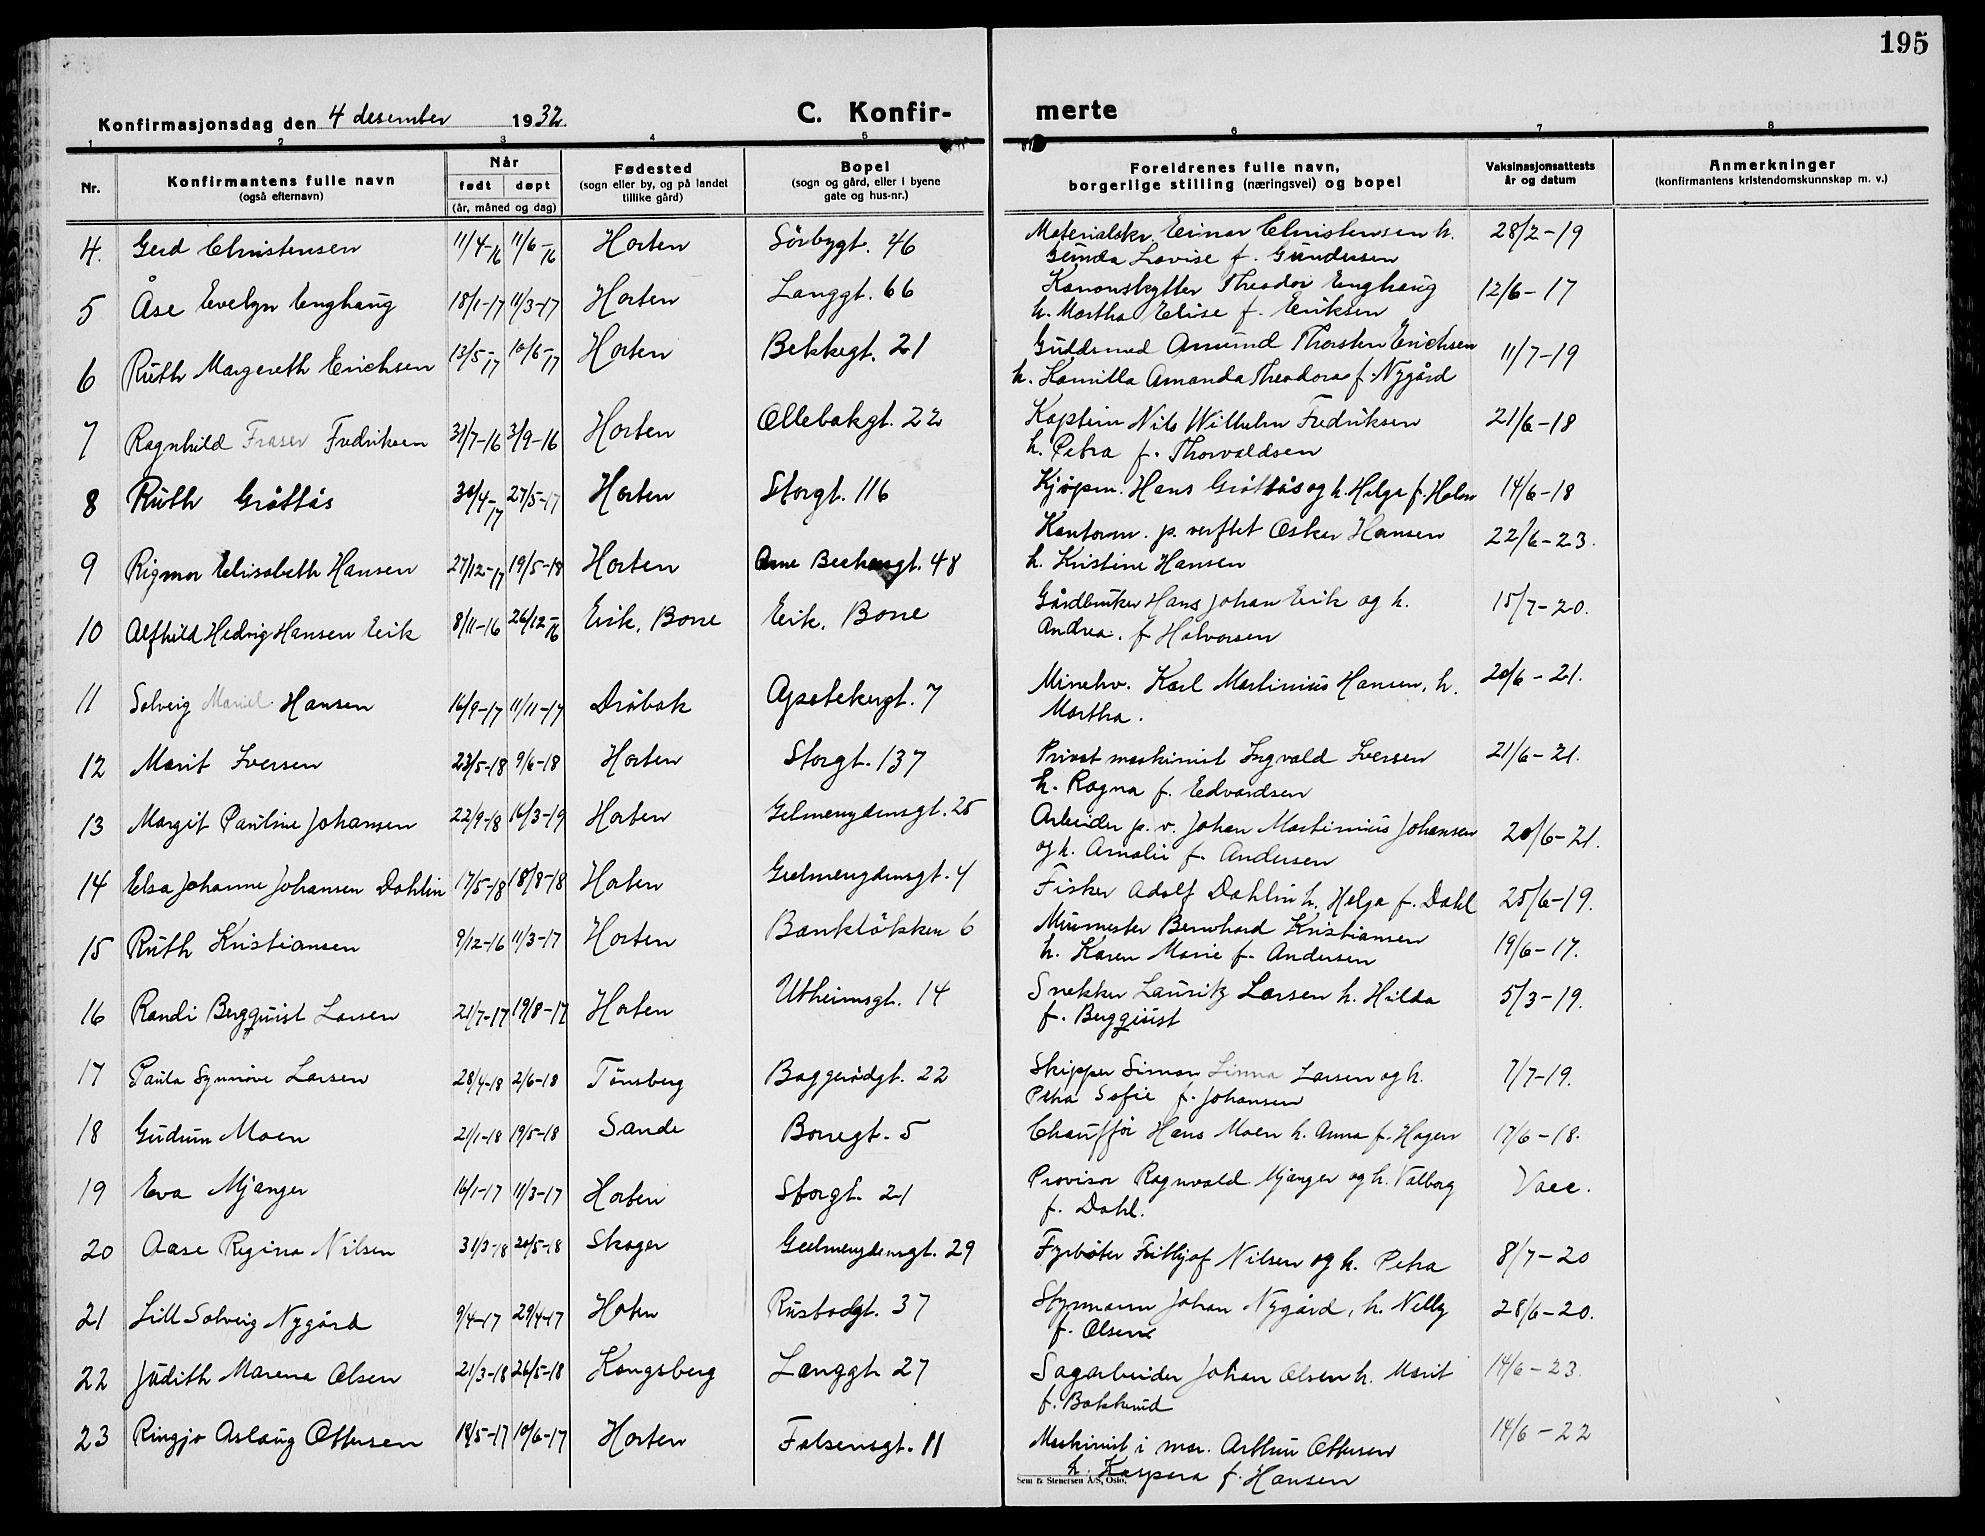 195
Konfirmasjonsdag den 4 desember 1932. C. Konfir- merte
1 2 3 4 5 6 7 8
Nr. Konfirmantens fulle navn (også efternavn) Når født døpt (år, måned og dag) Fødested (sogn eller by, og på landet tillike gård) Bopel (sogn og gård, eller i byene gate og hus-nr.) Foreldrenes fulle navn, borgerlige stilling (næringsvei) og bopel Vaksinasjonsattests år og datum Anmerkninger (konfirmantens kristendomskunnskap m. v.)
4. Gerd Christensen 11/4-16 11/6-16 Horten Sörbygt. 46 Materialskr. Einar Christensen h. 28/2-19
Gunda Lovise f. Gundersen
5 Åse Evelyn Enghaug 18/1-17 11/3-17 Horten Langgt. 66 Kanonskytter Theodor Enghaug 12/6-17
h. Martha Elise f. Eriksen
6 Ruth Margereth Erichsen 13/5-17 10/6-17 Horten Bekkegt. 21 Gullsmed Amund Thorsten Erichsen 11/7-19
h. Kamilla Amanda Theodora f. Nygård
7 Ragnhild Fraser Fredriksen 31/7-16 3/9-16 Horten Ollebakgt. 22 Kaptein Nils Wilhelm Fredriksen 21/6-18
h. Petra f. Thorvaldsen
8 Ruth Gråttås 30/4-17 27/5-17 Horten Storgt. 116 Kjøpm. Hans Gråttås og h. Helga f. Holm 14/6-18
9 Rigmor Elisabeth Hansen 27/12-17 19/5-18 Horten Arne 48 Kontorm. p. verftet Oskar Hansen 22/6-23.
h. Kristine Hansen
10 Alfhild Hedvig Hansen Erik 8/11-16 26/12-16 Erik, Borre Erik, Borre Gårdbruker Hans Johan Erik og h. 15/7-20.
Andrea. f Halvorsen
11 Solveig Mariel Hansen 16/9-17 11/11-17 Dröbak Apotekergt. 7 Minehv. Karl Martinius Hansen, h. 20/6-21.
Martha.
12 Marit Iversen 23/5-18 9/6-18 Horten Storgt. 137 Privat maskinist Ingvald Iversen 21/6-21.
h. Ragna f. Edvardsen
13 Margit Pauline Johansen 22/9-18 16/3-19 Horten Gelmenydensgt. 25 Arbeider p. v. Johan Martinius Johansen 20/6-21.
og h. Amalie f. Andersen
14 Elsa Johanne Johansen Dahlin 17/5-18 18/8-18 Horten Geelmenydensgt. 4 Fisker Adolf Dahlin h. Helga f. Dahl 25/6-19.
15 Ruth Kristiansen 9/12-16 11/3-17 Horten Bankløkken 6 Murmester Bernhard Kristiansen 19/6-17.
h. Karen Marie f. Andersen
16 Randi Bergquist Larsen 21/7-17 19/8-17 Horten Utheimsgt. 14 Snekker Lauritz Larsen h. Hilda 5/3-19.
f. Bergquist
17 Paula Synnöve Larsen 28/4-18 2/6-18 Tönsberg Baggerödgt. 22 Skipper Simon Linna Larsen og h. 7/7-19.
Petra Sofie f. Johansen
18 Gudrun Moen 21/1-18 19/5-18 Sande Borregt. 5 Chauffør Hans Moen h. Anna f. Hagen 17/6-18.
19 Eva Mjanger 16/1-17 11/3-17 Horten Storgt. 21 Provisor Ragnvald Mjanger og h. Valborg Vacc.
f. Dahl.
20 Aase Regina Nilsen 31/3-18 20/5-18 Skoger Geelmenydensgt. 29 Fyrbøter Fritbjof Nilsen og h. Petra 8/7-20
21 Lill Solveig Nygård 9/4-17 29/4-17 Horten Rustadgt. 37 Styrmann Johan Nygård, h. Nelly 28/6-20.
f. Olsen
22 Judith Marena Olsen 21/3-18 26/5-18 Kongsberg Langgt. 27 Sagarbeider Johan Olsen h. Marit 14/6-23.
f. Bakkerud
23 Ringjo Aslaug Ottersen 18/5-17 10/6-17 Horten Falsensgt. 11 Maskinist i mar. Arthur Ottersen 14/6-22
h. Kaspara f. Hansen
Sem & Stenersen A/S, Oslo.